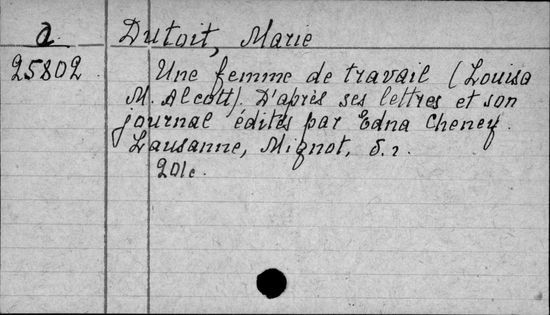 a Dutoit, Marie
25802 Une femme de travail (Louisa
M. Alcott). D'après ses lettres et son
journal édités par Edna Cheney.
Lausanne, Mignot, б.г.
201c.